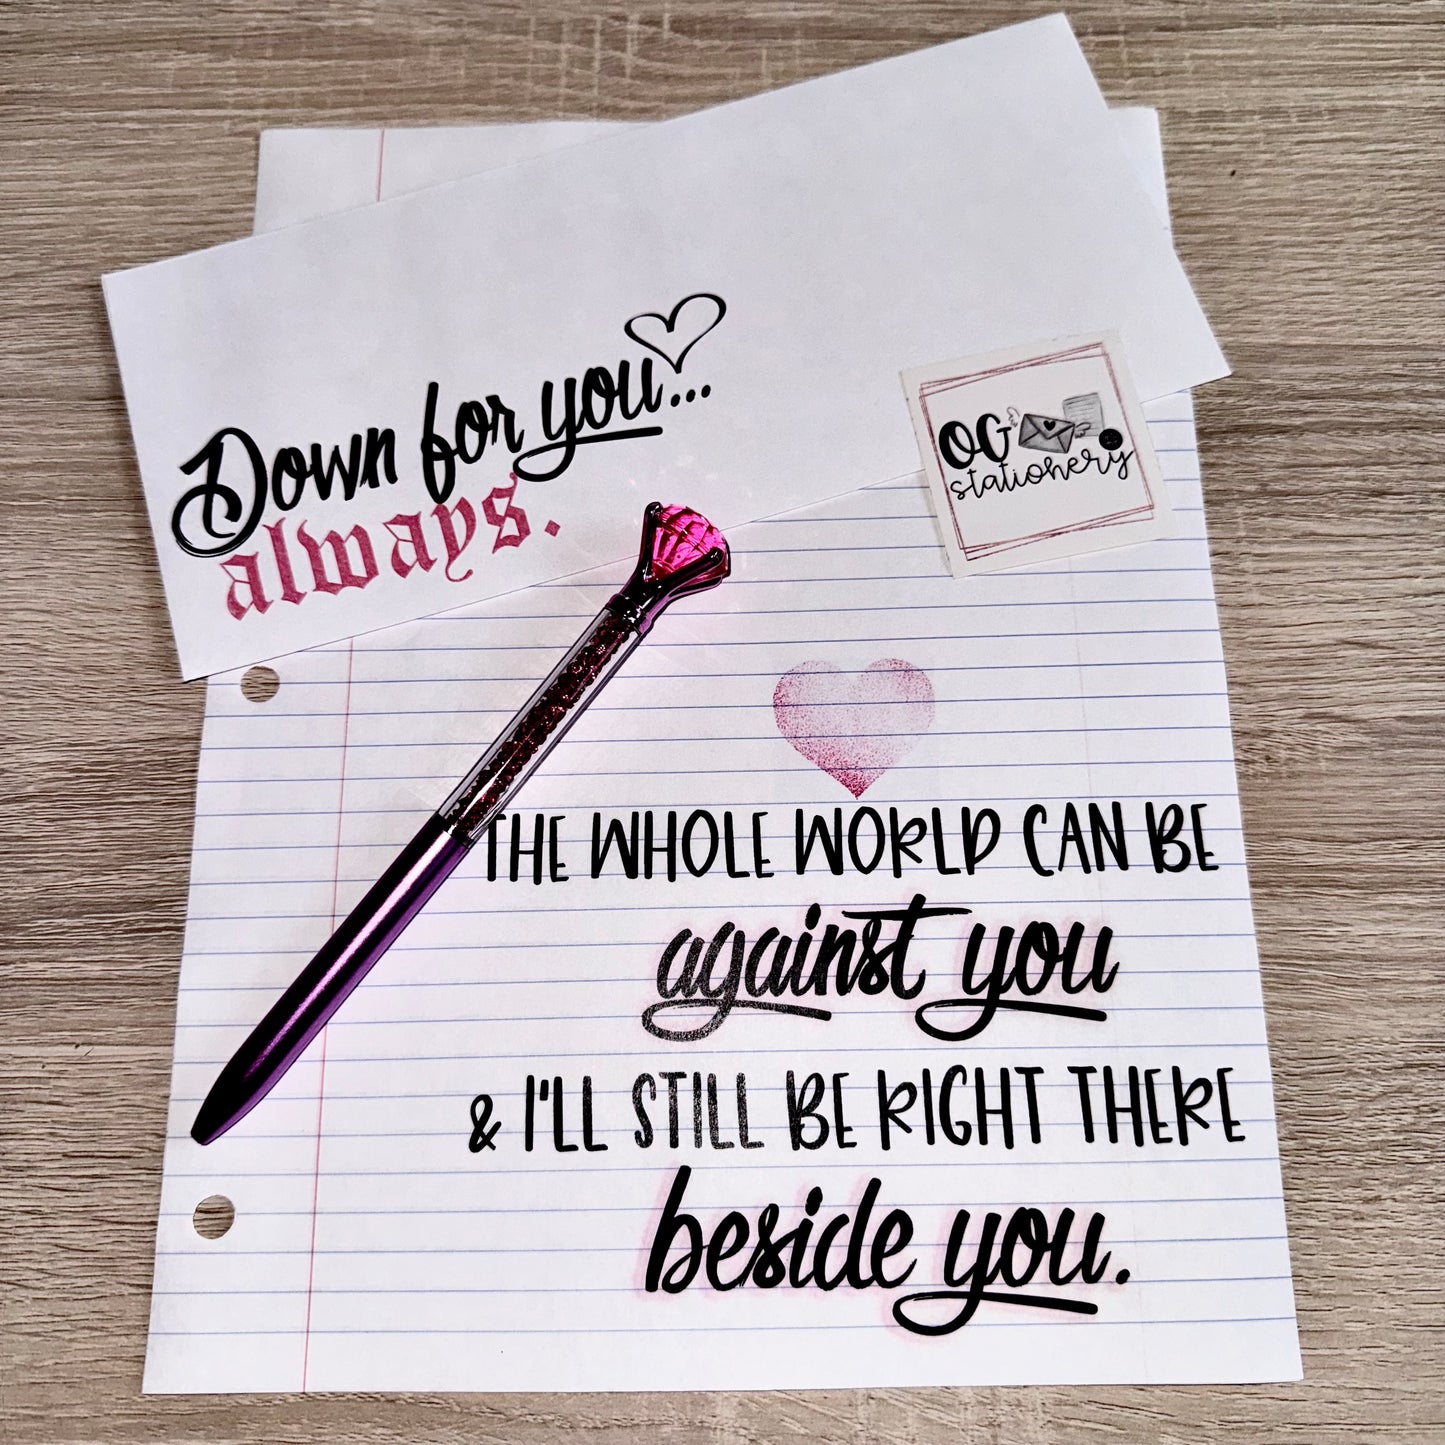 Down for you...
always.
OG
stationery
THE WHOLE WORLD CAN BE
against you
& I'LL STILL BE RIGHT THERE
beside you.